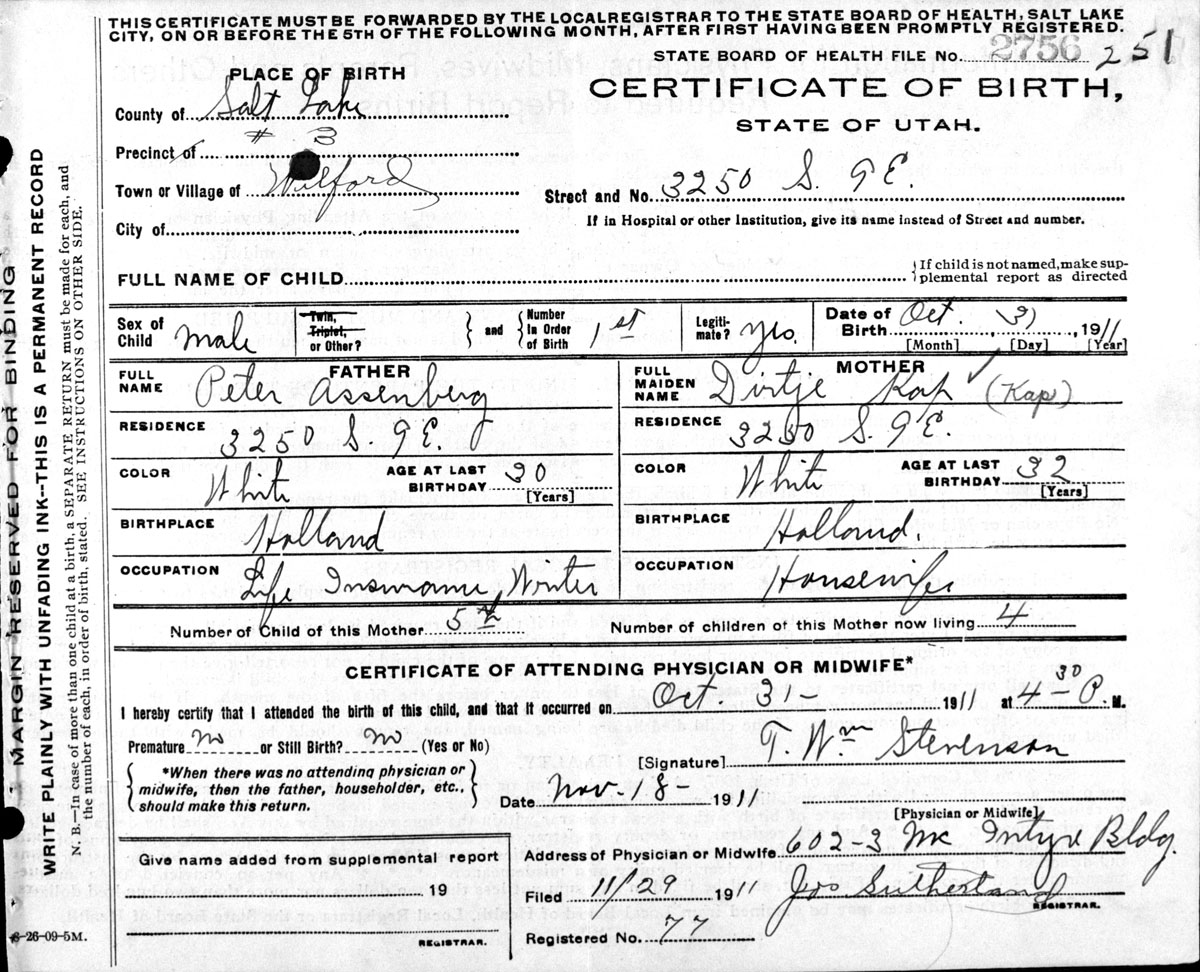 THIS CERTIFICATE MUST BE FORWARDED BY THE LOCAL REGISTRAR TO THE STATE BOARD OF HEALTH, SALT LAKE
CITY, ON OR BEFORE THE 5TH OF THE FOLLOWING MONTH, AFTER FIRST HAVING BEEN PROMPTLY REGISTERED.
STATE BOARD OF HEALTH FILE No. 2756 251
PLACE OF BIRTH
CERTIFICATE OF BIRTH,
STATE OF UTAH.
County of Salt Lake
Precinct of # 3
Town or Village of Wilford
Street and No. 3250 S. 9 E.
City of
If in Hospital or other Institution, give its name instead of Street and number.
FULL NAME OF CHILD
If child is not named, make sup-
plemental report as directed
Sex of Child Male
Twin, Triplet, or Other?
and Number In Order of Birth 1st
Legiti-mate? Yes.
Date of Birth Oct. 3, 1911
[Month] [Day] [Year]
FATHER
FULL NAME Peter Assenberg
RESIDENCE 3250 S. 9 E.
COLOR White AGE AT LAST BIRTHDAY 30 [Years]
BIRTHPLACE Holland
OCCUPATION Life Insurance Writer
MOTHER
FULL MAIDEN NAME Dirtje Kap (Kap)
RESIDENCE 3250 S. 9 E.
COLOR White AGE AT LAST BIRTHDAY 32 [Years]
BIRTHPLACE Holland.
OCCUPATION Housewife
Number of Child of this Mother 5th
Number of children of this Mother now living 4
CERTIFICATE OF ATTENDING PHYSICIAN OR MIDWIFE*
I hereby certify that I attended the birth of this child, and that it occurred on Oct. 3 - 1911 at 4 30 P. M.
Premature no or Still Birth? no (Yes or No)
[Signature] T. Wm Stevenson
*When there was no attending physician or
midwife, then the father, householder, etc.,
should make this return.
Date Nov. 18 - 1911
[Physician or Midwife]
Give name added from supplemental report
19
REGISTRAR.
Address of Physician or Midwife 602-3 Mc Intyre Bldg.
Filed 11/29 1911 Jos Sutherland
REGISTRAR.
Registered No. 77
8-26-09-5M.
MARGIN RESERVED FOR BINDING
WRITE PLAINLY WITH UNFADING INK--THIS IS A PERMANENT RECORD
N. B.—In case of more than one child at a birth, a SEPARATE RETURN must be made for each, and
the number of each, in order of birth, stated. SEE INSTRUCTIONS ON OTHER SIDE.